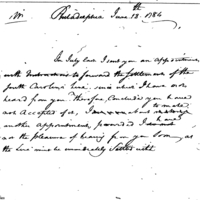 Sir Philadelphia June 13th 1784
In July last I sent you an appointment
with Instructions to forward the settlement of the
South Carolina Line, since which I have not
heard from you therefore Concluded you have
not Accepted of it, I to make
another appointment, provided I
not the pleasure of hearing from you Soon, as
the Line must be immediately Settled with